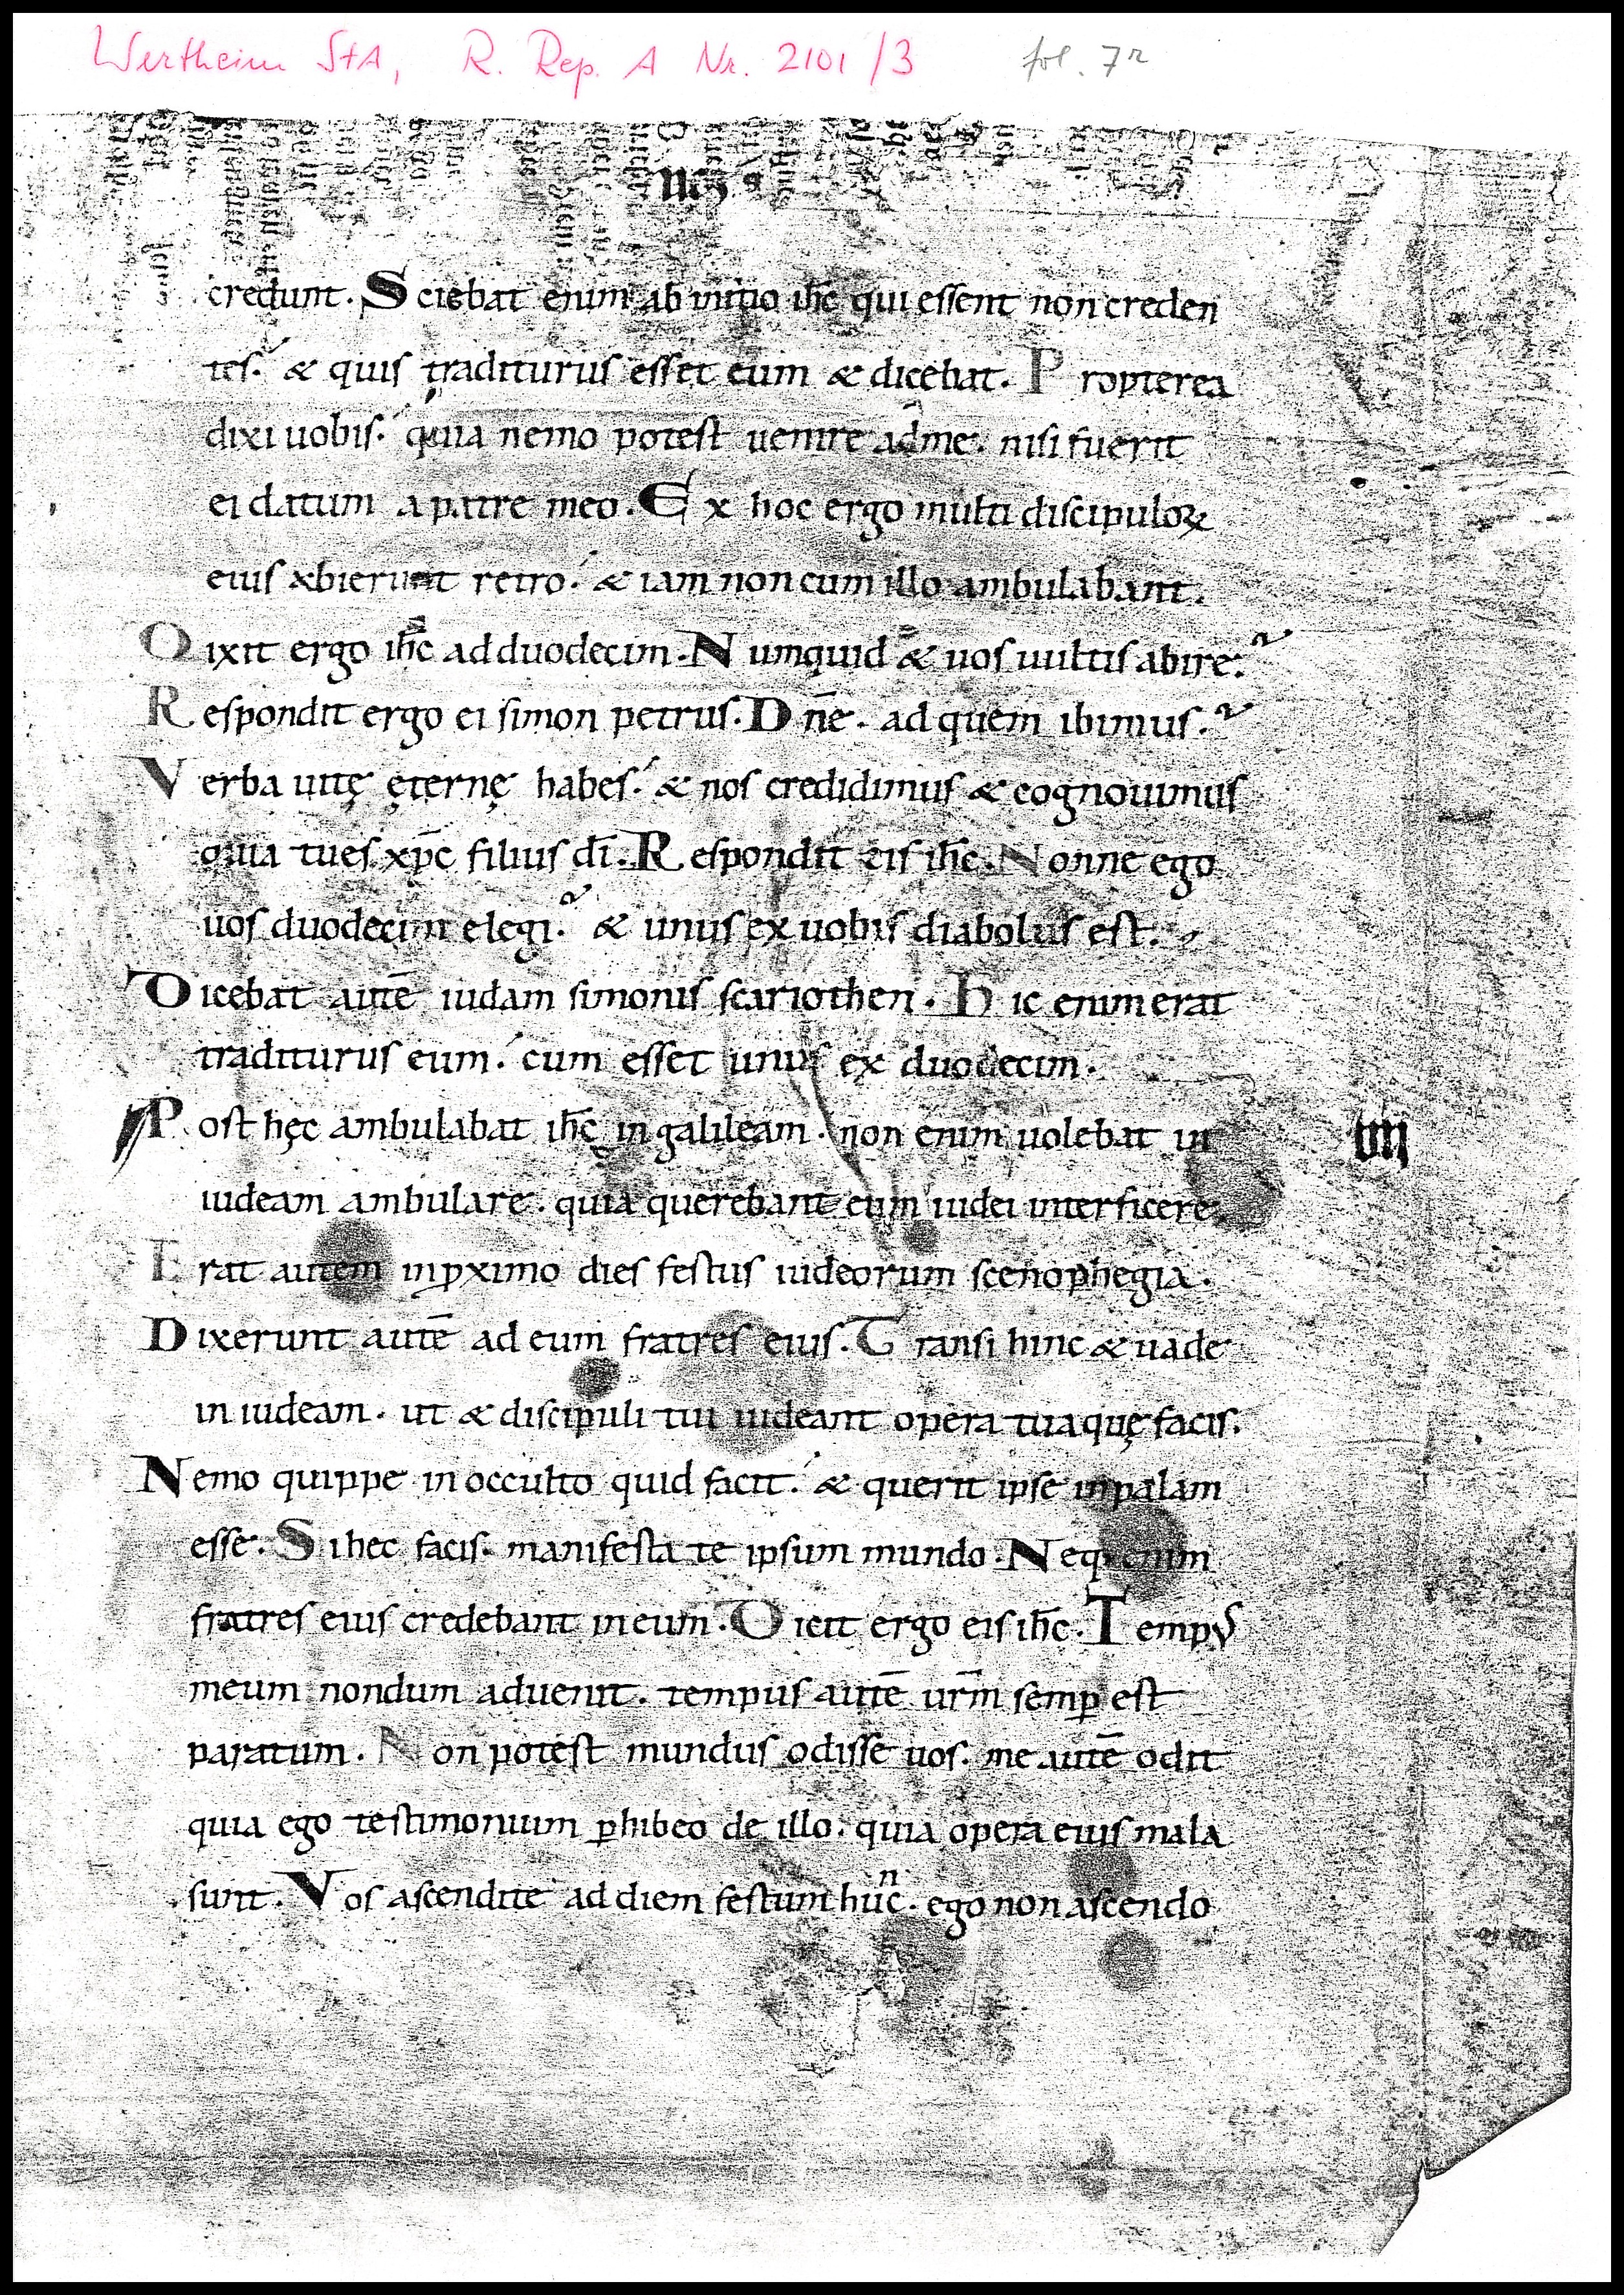 Wertheim StA, R. Rep. A Nr. 2101/3 fol. 7r
credunt. Sciebat enim ab initio ihc̄ qui essent non creden
tes. & quis traditurus esset eum & dicebat. Propterea
dixi uobis. quia nemo potest uenire ad me. nisi fuerit
ei datum a patre meo. Ex hoc ergo multi discipuloꝝ
eius abierunt retro. & iam non cum illo ambulabant.
Dixit ergo ihc̄ ad duodecim. Numquid & uos uultis abire?
Respondit ergo ei simon petrus. Dn̄e. ad quem ibimus?
Verba uitę ęternę habes. & nos credidimus & cognouimus
quia tu es xp̄c filius dī. Respondit eis ihc̄. Nonne ego
uos duodecim elegi? & unus ex uobis diabolus est.
Dicebat autē iudam simonis scariothen. Hic enim erat
traditurus eum. cum esset unus ex duodecim.
Post hęc ambulabat ihc̄ in galileam. non enim uolebat in
iiij
iudeam ambulare. quia querebant eum iudei interficere.
Erat autem in ꝓximo dies festus iudeorum scenophegia.
Dixerunt autē ad eum fratres eius. Transi hinc & uade
in iudeam. ut & discipuli tui uideant opera tua quę facis.
Nemo quippe in occulto quid facit. & querit ipse in palam
esse. Si hec facis. manifesta te ipsum mundo. Neq; enim
fratres eius credebant in eum. Dicit ergo eis ihc̄. Tempus
meum nondum aduenit. tempus autē ur̄m semꝑ est
paratum. Non potest mundus odisse uos. me autē odit
quia ego testimonium ꝑhibeo de illo. quia opera eius mala
sunt. Vos ascendite ad diem festum hunc. ego non ascendo